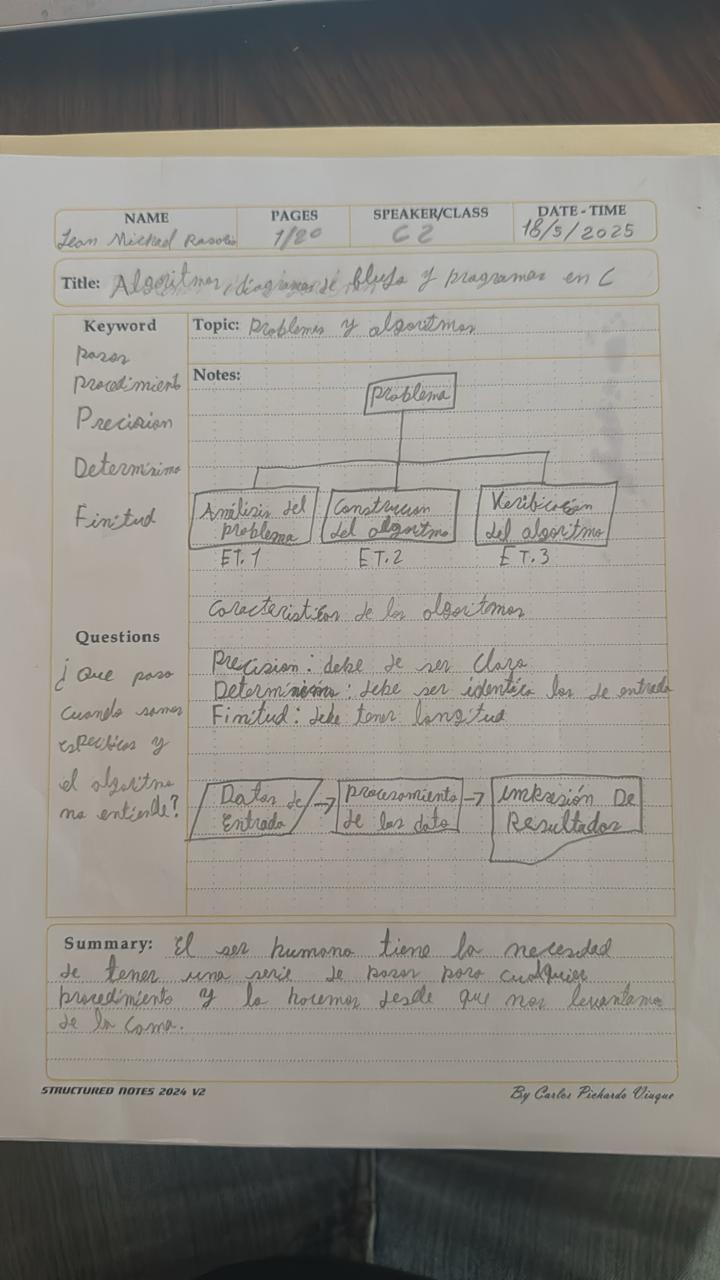 NAME
PAGES
SPEAKER/CLASS
DATE - TIME
Jean Michael
1/20
C2
18/5/2025
Title: Algoritmos, diagramas de flujo y programas en C
Keyword
pasos
procedimient
Precision
Determinismo
Finitud
Topic: Problemas y algoritmos
Notes:
Problema
Análisis del
problema
ET.1
Construcion
del algoritmo
ET.2
Verificación
del algoritmo
ET.3
Caracteristicas de los algoritmos
Precision: debe de ser Claro
Determinismo: debe ser identico los de entrada
Finitud: debe tener longitud
Questions
¿Que pasa
cuando somos
especificos y
el algoritmo
no entiende?
Datos de
Entrada
→
procesamiento
de los dato
→
imkresión De
Resultados
Summary: El ser humano tiene la necesidad
de tener una serie de pasos para cualquier
procedimiento y lo hacemos desde que nos levantamo
de la cama.
STRUCTURED NOTES 2024 V2
By Carlos Pichardo Viuque